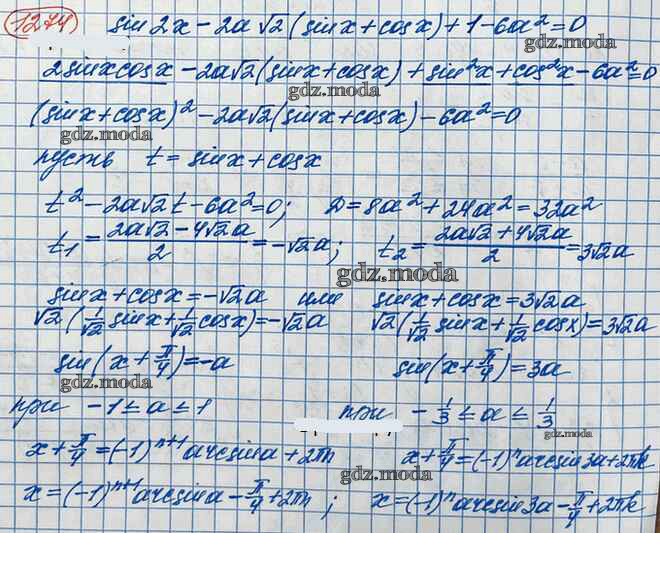 1274 sin2x - 2a√2(sinx + cosx) + 1 - 6a² = 0
gdz.moda
2sinxcosx - 2a√2(sinx + cosx) + sin²x + cos²x - 6a² = 0
gdz.moda
(sinx + cosx)² - 2a√2(sinx + cosx) - 6a² = 0
gdz.moda
пусть t = sinx + cosx
gdz.moda
t² - 2a√2t - 6a² = 0; D = 8a² + 24a² = 32a²
t₁ = (2a√2 - 4√2a)/2 = -√2a; t₂ = (2a√2 + 4√2a)/2 = 3√2a
gdz.moda
gdz.moda
sinx + cosx = -√2a или sinx + cosx = 3√2a
gdz.moda
√2(1/√2 sinx + 1/√2 cosx) = -√2a √2(1/√2 sinx + 1/√2 cosx) = 3√2a
sin(x + π/4) = -a sin(x + π/4) = 3a
gdz.moda
при -1 ≤ a ≤ 1 при -1/3 ≤ a ≤ 1/3
gdz.moda
x + π/4 = (-1)ⁿ⁺¹ arcsina + 2πn x + π/4 = (-1)ⁿ arcsin3a + 2πk
gdz.moda
x = (-1)ⁿ⁺¹ arcsina - π/4 + 2πn; x = (-1)ⁿ arcsin3a - π/4 + 2πk
gdz.moda
gdz.moda